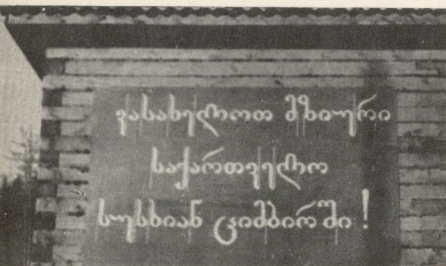 ვასახელოთ მზიური
საქართველო
სუსხიან ციმბირში!